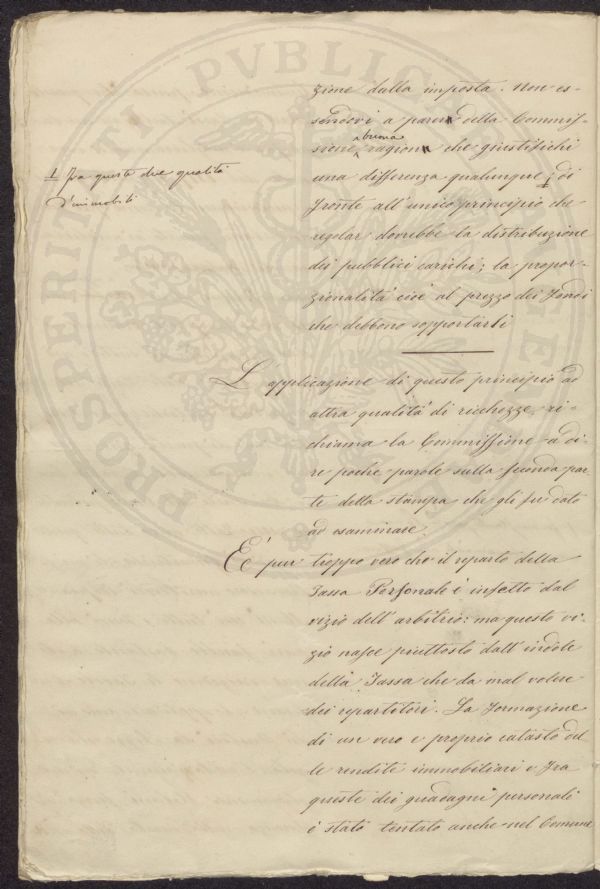 zione dalla imposta. Non es-
sendovi a parer della Commis-
sione, buona ragion che giustifichi
una differenza qualunque 1/ di
fronte all'unico principio che
regolar dovrebbe la distribuzione
dei pubblici carichi; la propor-
zionalità cioè al prezzo dei fondi
che debbono sopportarli
1/ fra queste due qualità
d'immobili
L'applicazione di questo principio ad
altra qualità di ricchezze, ri-
chiama la Commissione a di-
re poche parole sulla seconda par
te della stampa che gli fu dato
ad esaminare.
E' pur troppo vero che il reparto della
Tassa Personale è infetto dal
vizio dell'arbitrio: ma questo vi-
zio nasce piuttosto dall'indole
della Tassa che da mal volere
dei repartitori. La formazione
di un vero e proprio catasto del
le rendite immobiliari e fra
queste dei guadagni personali
è stato tentato anche nel Comune
PROSPERITATI PVBLICAE